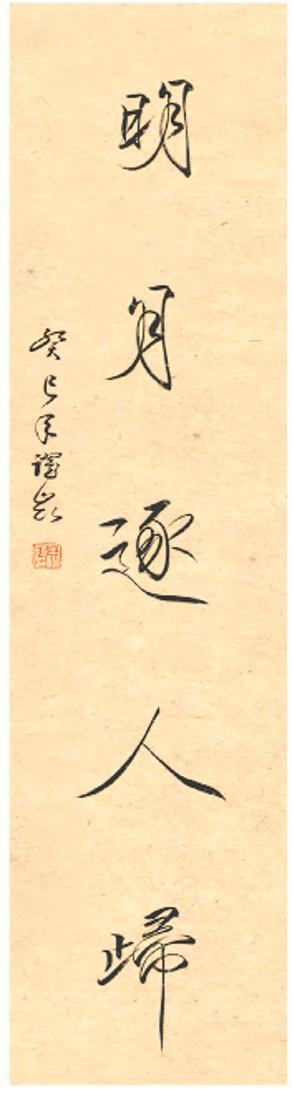 明月逐人歸
癸巳年